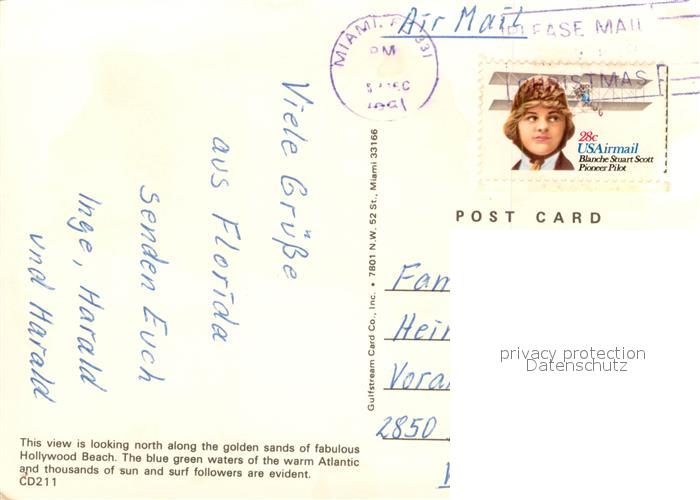 Air Mail
MIAMI, F 331
PM
DEC
1981
PLEASE MAIL
CHRISTMAS
28c
USAirmail
Blanche Stuart Scott
Pioneer Pilot
POST CARD
Viele Grüße
aus Florida
senden Euch
Inge, Harald
und Harald
Gulfstream Card Co., Inc. • 7801 N.W. 52 St., Miami 33166
Fam
Hein
Vora
2850
privacy protection
Datenschutz
This view is looking north along the golden sands of fabulous
Hollywood Beach. The blue green waters of the warm Atlantic
and thousands of sun and surf followers are evident.
CD211